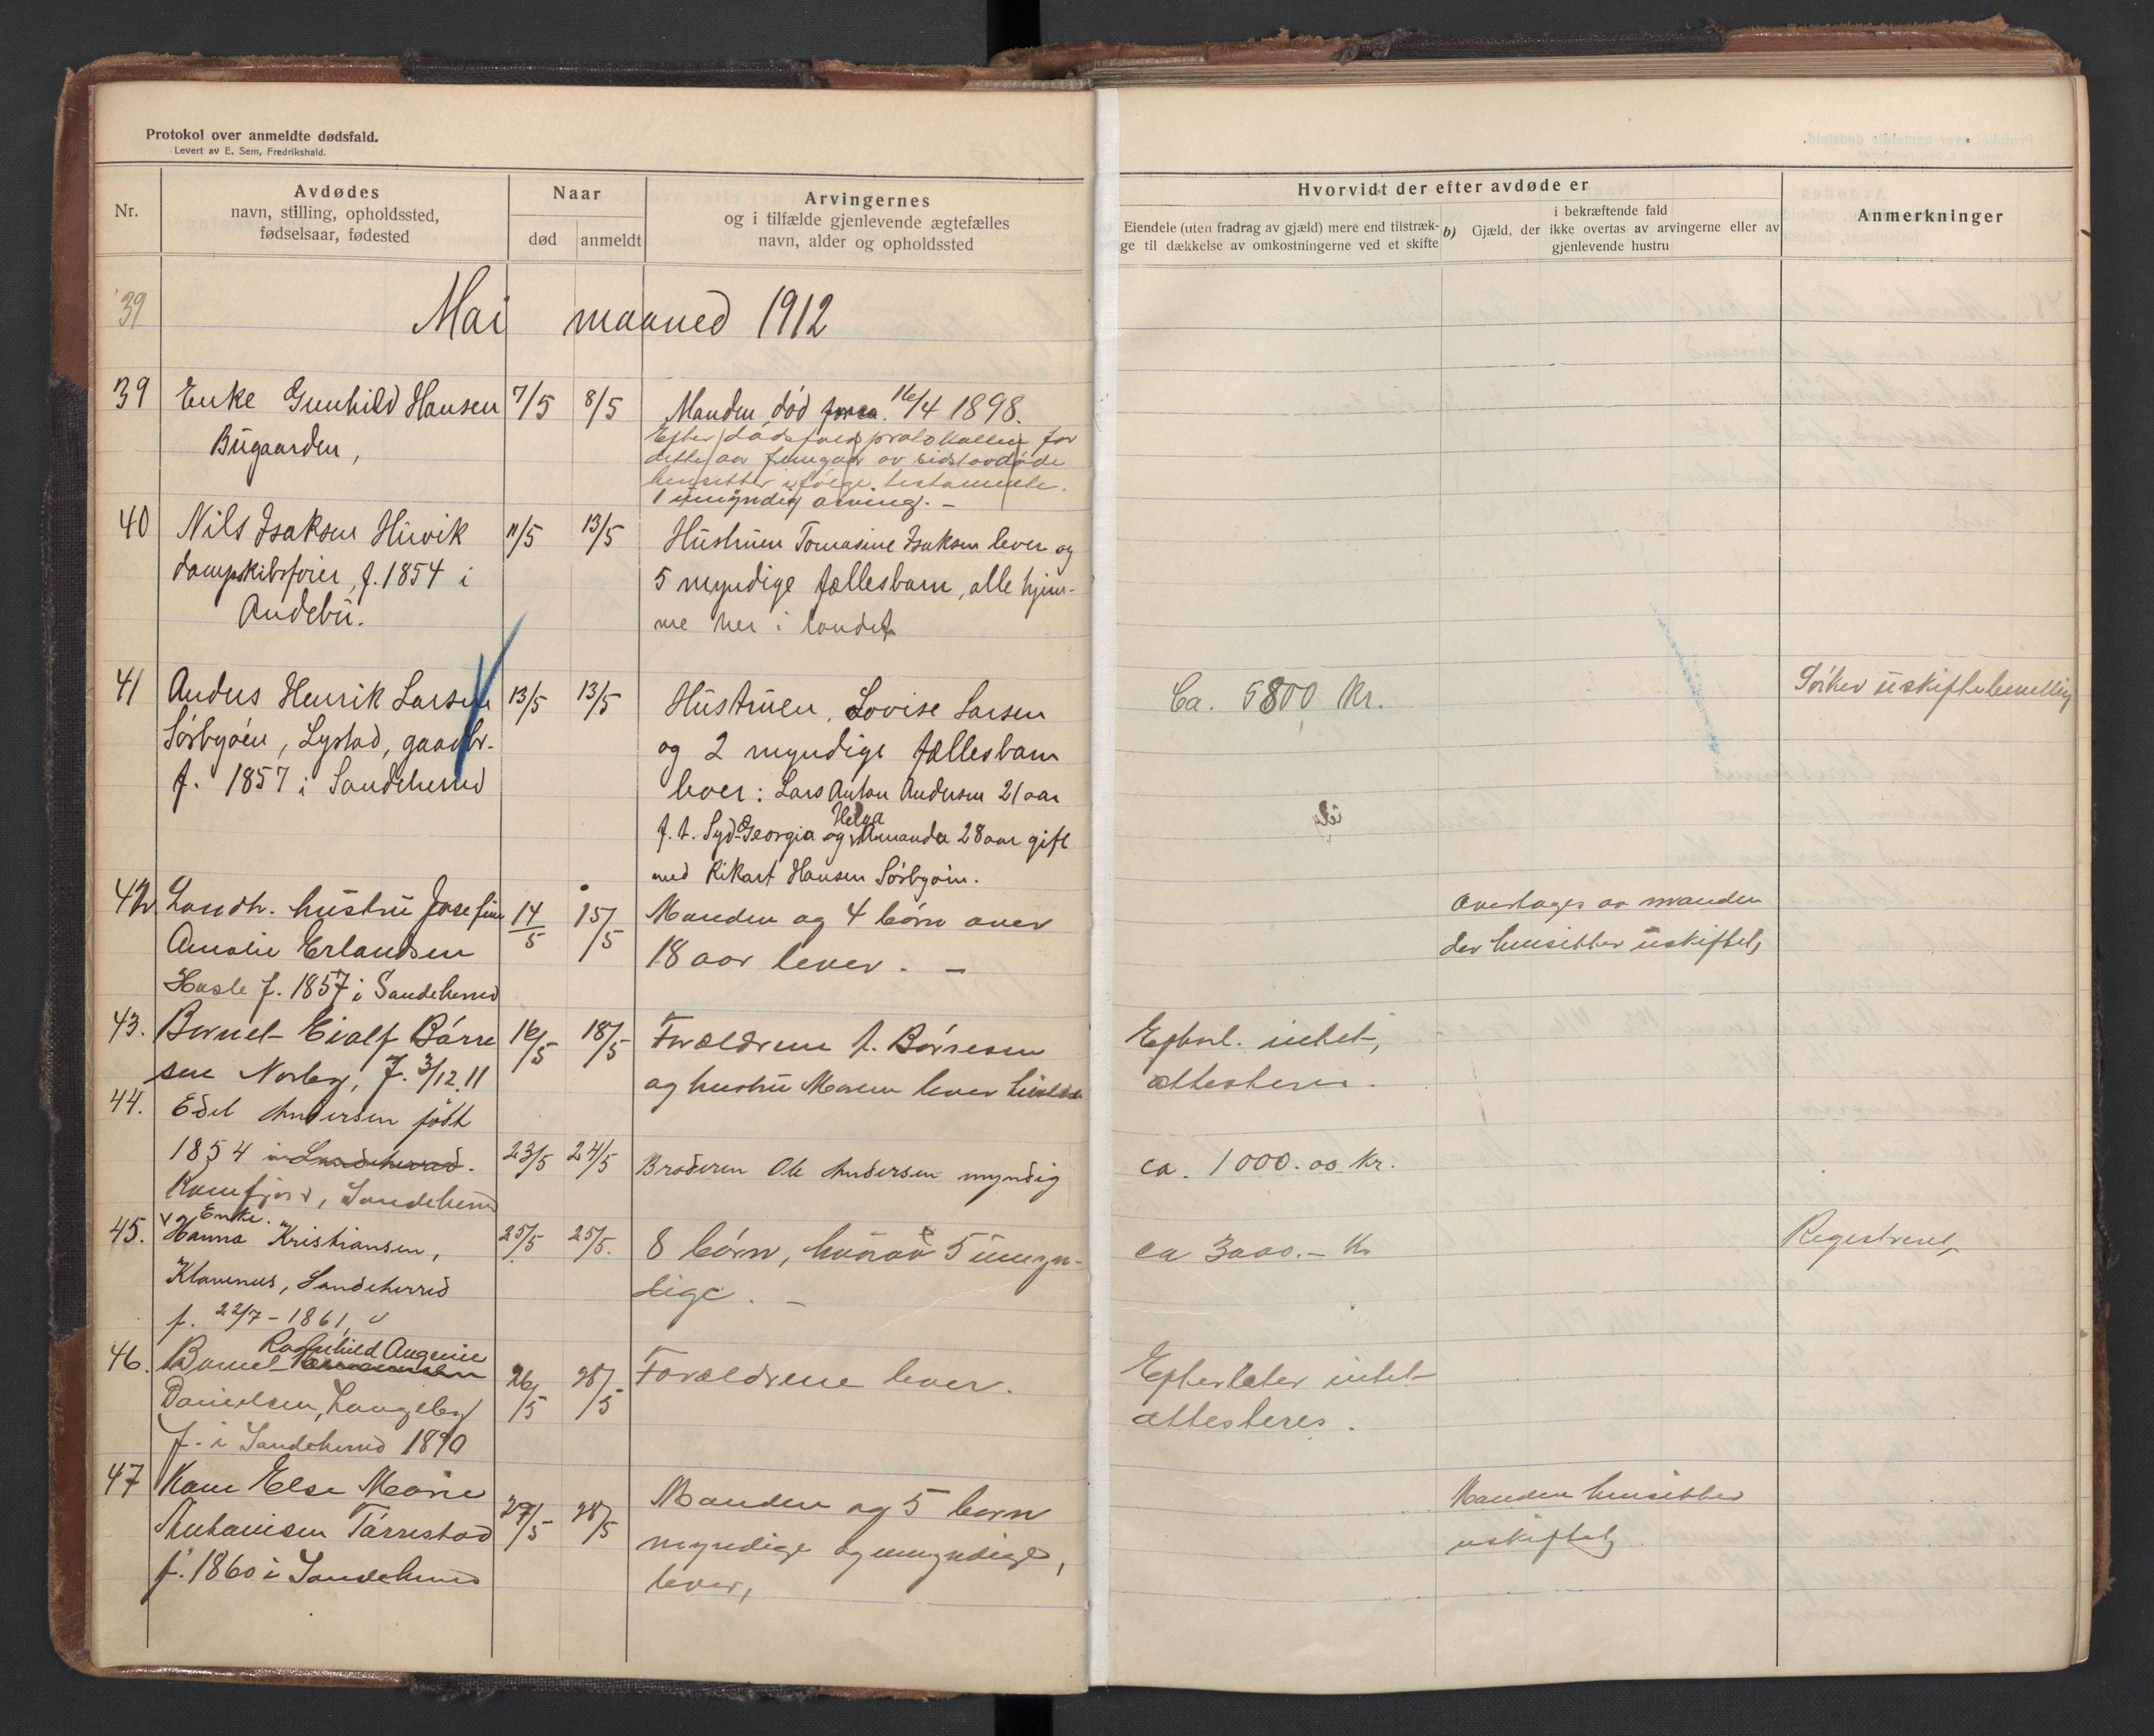 Protokol over anmeldte dødsfald.
Levert av E. Sem, Fredrikshald.
Nr.
Avdødes
navn, stilling, opholdssted,
fødselsaar, fødested
Naar
død
anmeldt
Arvingernes
og i tilfælde gjenlevende ægtefælles
navn, alder og opholdssted
Hvorvidt der efter avdøde er
Eiendele (uten fradrag av gjæld) mere end tilstræk-
ge til dækkelse av omkostningerne ved et skifte
b)
i bekræftende fald
Gjæld, der ikke overtas av arvingerne eller av
gjenlevende hustru
Anmerkninger
39
Mai maaned 1912
39
Enke Gunhild Hansen
Bugaarden,
7/5
8/5
Manden død 16/4 1898.
Efter dødsfaldsprotokollen for
dette aar fremgaar av sidstavdøde
hensitter ifølge testamente.
1 umyndig arving. –
40
Nils Isaksen Huvik
dampskibsfører, f. 1854 i
Andebu.
11/5
13/5
Hustruen Tomasine Isaksen lever og
5 myndige fællesbarn, alle hjem-
me her i landet
41
Anders Henrik Larsen
Sørbyøen, Lystad, gaardbr.
f. 1857 i Sandeherred
13/5
13/5
Hustruen, Lovise Larsen
og 2 myndige fællesbarn
lever: Lars Anton Andersen 21 aar
f. t. Syd-Georgia og Helga Amanda 28 aar gift
med Rikart Hansen Sørbyøin.
Ca. 5800 Kr.
Søker uskiftebevilling
42
Landh. hustru Josefine
Amalie Erlandsen
Hasle f. 1857 i Sandeherred
14/5
15/5
Manden og 4 børn over
18 aar lever. –
Overtages av manden
der hensitter uskiftet,
43.
Barnet Eialf Børre
sen Norby, f. 3/12.11
16/5
18/5
Forældrene A. Børresen
og hustru Maren lever
Efterl. intet,
attesteres.
44.
Edel Andersen født
1854 i Sandeherred.
Kamfjord, Sandeherred
23/5
24/5
Broderen Ole Andersen myndig
ca. 1000.00 Kr.
45.
Enke.
Hanna Kristiansen,
Klavenes, Sandeherred
f. 22/7 – 1861,
25/5
25/5.
8 børn, hvorav 5 umyn-
dige. –
ca 3000.– Kr
Registreret,
46.
Ragnhild Augenie
Barnet
Danielsen, Langeby
f. i Sandeherred 1890
26/5
28/5
Forældrene lever.
Efterlater intet
attesteres.
47
Kone Else Marie
Antonisen Tørrestad
f. 1860 i Sandeherred
27/5
28/5
Manden og 5 børn
myndige og umyndige,
lever,
Manden hensitter
uskiftet,